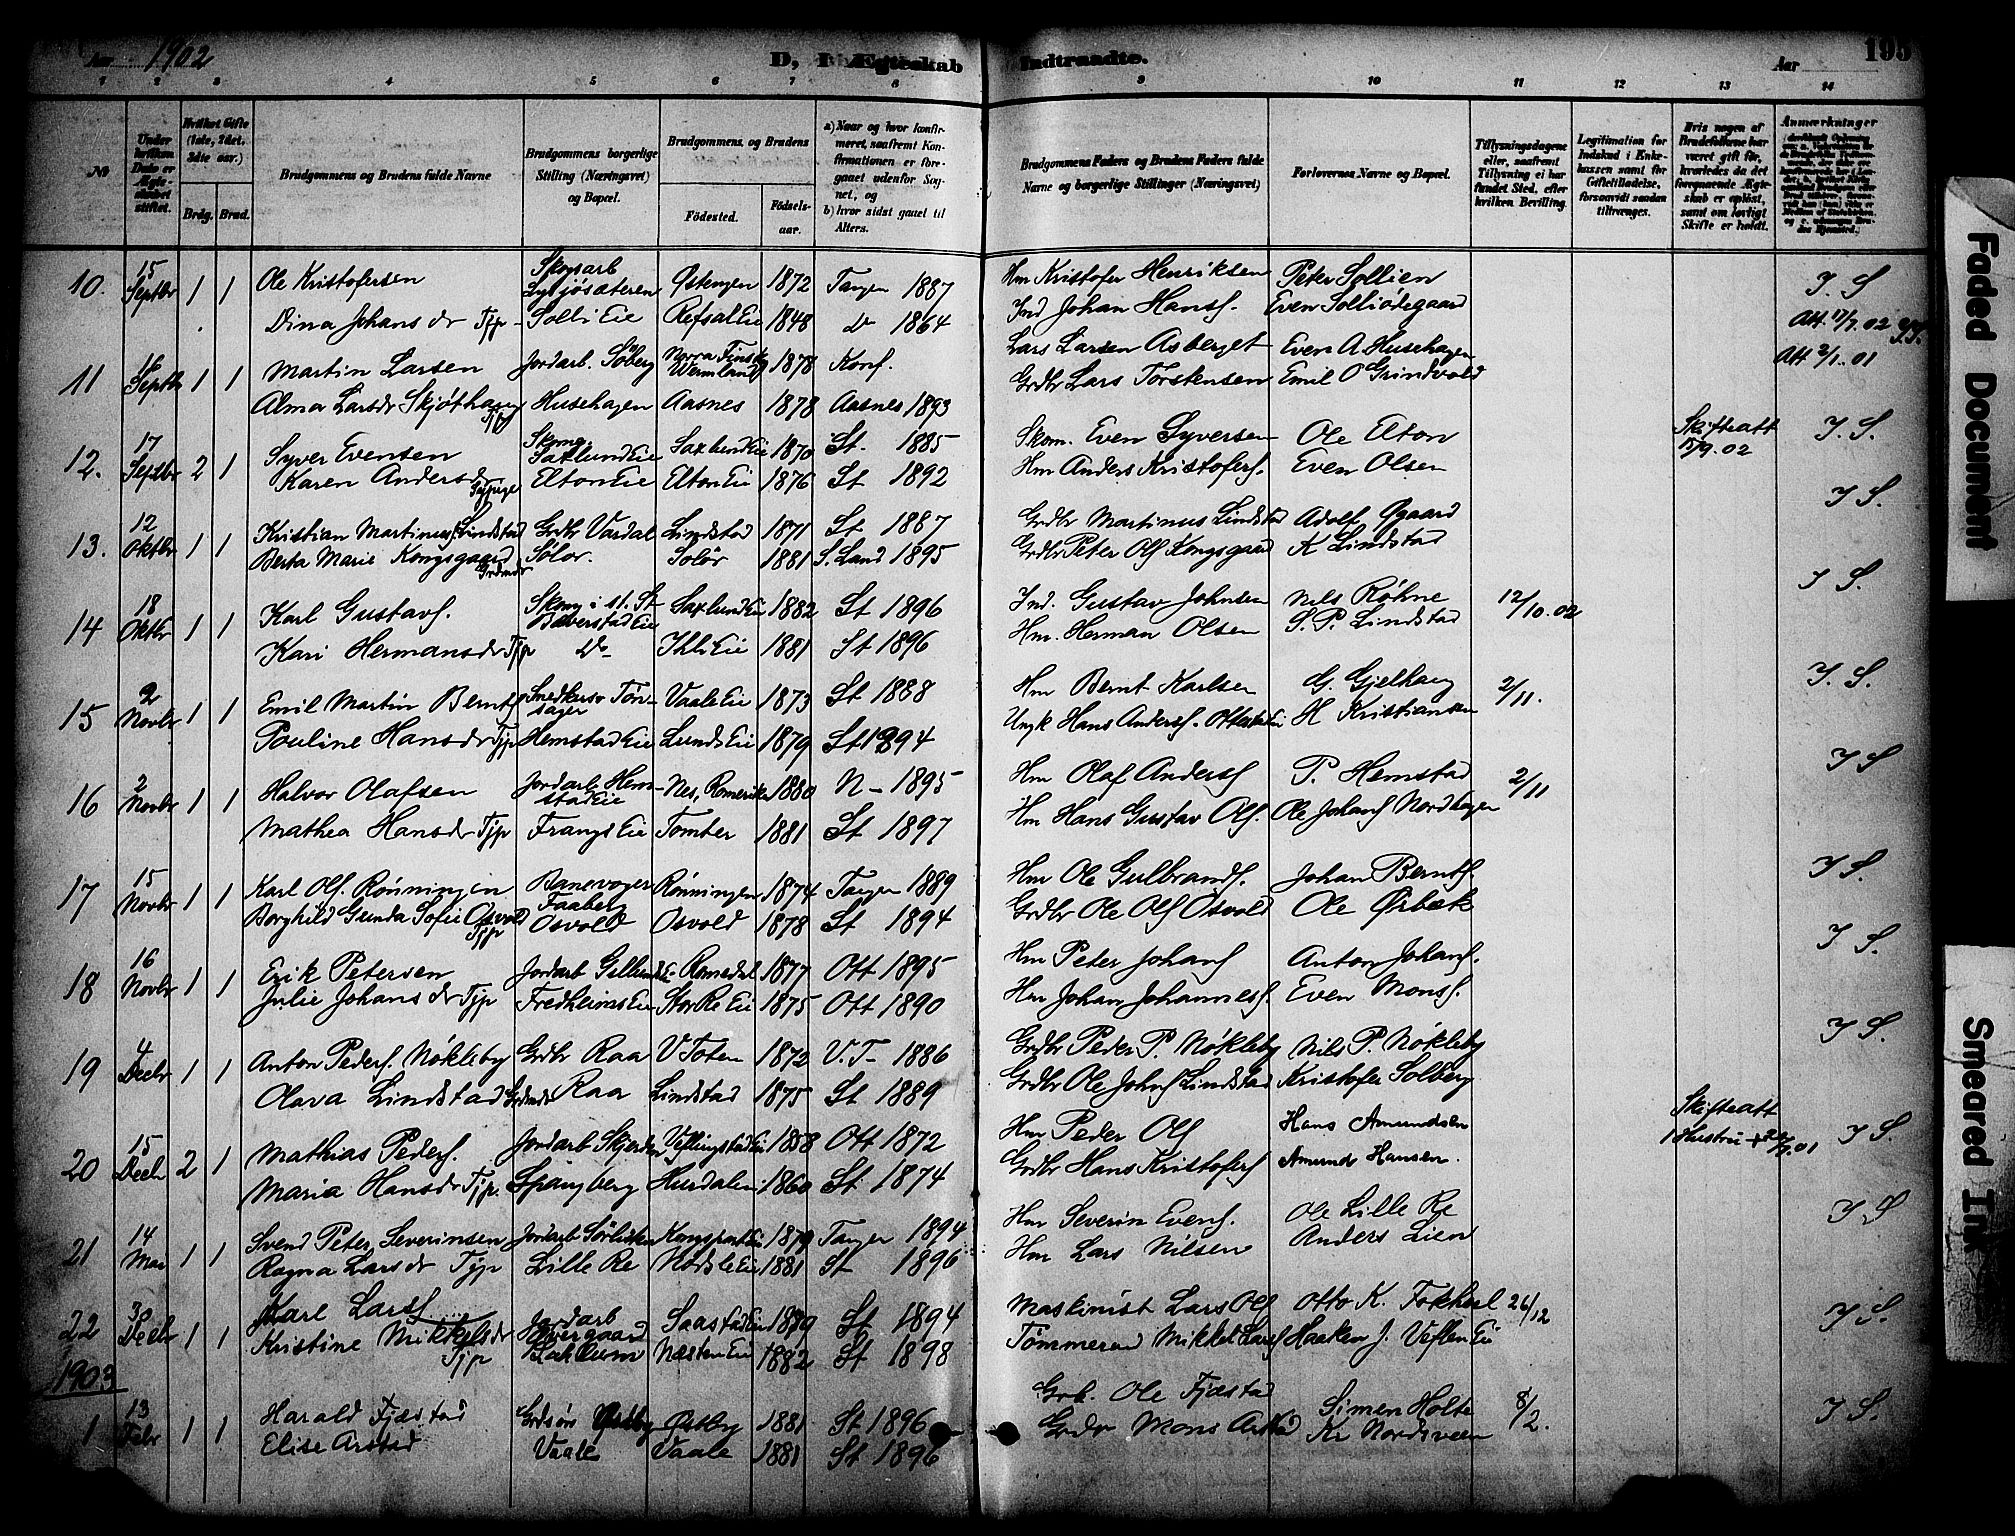 Aar 1902 D, 1 Ægteskab Indtraadte. Aar 195
1 2 3 4 5 6 7 8 9 10 11 12 13 14
№
Under hvilken Dato er Ægteskabet stiftet.
Hvilket Gifte (1ste, 2det, 3die osv.)
Brdg. Brud.
Brudgommens og Brudens fulde Navne
Brudgommens borgerlige Stilling (Næringsvei) og Bopæl.
Brudgommens og Brudens
Fødested. Fødselsaar.
a) Naar og hvor konfirmeret, saafremt Konfirmationen er foregaaet udenfor Sognet, og
b) hvor sidst gaaet til Alters.
Brudgommens Faders og Brudens Faders fulde Navne og borgerlige Stillinger (Næringsvei)
Forlovernes Navne og Bopæl.
Tillysningsdagene eller, saafremt Tillysning ei har fundet Sted, efter hvilken Bevilling.
Legitimation for Indskud i Enkekassen samt for Giftetilladelse, forsaavidt saadan tiltrænges.
Hvis nogen af Brudefolkene har været gift før, hvorledes da det foregaaende Ægteskab er opløst, samt om lovligt Skifte er holdt.
Anmærkninger
10. 15 Septbr 1 1 Ole Kristofersen Skogsarb Lysjösæteren Østengen 1872 Tangen 1887 Hm Kristofer Henriksen Peter Sollien I. S
Dina Johansdr Tjp Solli Eie Refsal Eie 1848 do 1864 Ind Johan Hans. Even Solliødegaard Att. 17/7 02
11 16 Septbr 1 1 Martin Larsen Jordarb. Søberg Norra Finsk Wermland 1878 Konf. Lars Larsen Asberget Even A Husehagen Att 2/1 01
Alma Larsdr Skjøthaug Tjp Husehagen Aasnes 1878 Aasnes 1893 Grdbr Lars Torstensen Emil O Grindvold
12. 17 Septbr 2 1 Syver Evensen Skoma. Saxlund Eie Saxlund Eie 1870 St. 1885 Skom. Even Syversen Ole Elton Skifteatt 15/9.02 I. S.
Karen Andersdr Elton Eie Elton Eie 1876 St 1892 Hm Anders Kristofers. Even Olsen
13. 12 Oktbr 1 1 Kristian Martinus Lindstad Grdbr Vardal Lindstad 1871 St 1887 Grdbr Martinus Lindstad Adolf Øgaard I S.
Berta Marie Kongsgaard Grdmdr Solør. Solør 1881 S. Land 1895 Grdbr Peter Ols Kongsgaard K Lindstad
14 18 Oktbr 1 1 Karl Gustavs. Skomg i St. Bæverstad Eie Saxlund Eie 1882 St 1896 Ind. Gustav Johnsen Nils Røhne 12/10.02 I S.
Kari Hermansdr Tjp do Ihli Eie 1881 St 1896 Hm. Herman Olsen S. P. Lindstad
15 2 Novbr 1 1 Emil Martin Bernts Smedkusv Tønsager Vaale Eie 1873 St 1888 Hm Bernt Karlsen G. Gjelhaug 2/11. I. S.
Pouline Hansdr Tjp Hemstad Eie Lunds Eie 1879 St 1894 Ungk Hans Anders. Ottestad Eie H Kristiansen
16 2 Novbr 1 1 Halvor Olafsen Jordarb. Hemstad Eie Nes, Romerike 1880 N - 1895 Hm Olaf Anders P. Hemstad 2/11 I S
Mathea Hansdr Tjp Frangs Eie Tomter 1881 St 1897 Hm Hans Gustav Ols. Ole Johans Nordhagen
17 15 Novbr 1 1 Karl Ols. Rønningen Banevogter Faaberg Rønningen 1874 Tangen 1889 Hm Ole Gulbrands. Johan Bernts. I S.
Borghild Gunda Sofie Osvold Tjp Osvold Osvold 1878 St 1894 Grdbr Ole Ols Osvold Ole Ørbæk
18 16 Novbr 1 1 Erik Petersen Jordarb Gillund E Romedal 1877 Ott 1895 Hm Peter Johans Anton Johans. I S.
Julie Johansdr Tjp Fredheims Eie Stor Re Eie 1875 Ott 1890 Hm Johan Johannes. Even Mons.
19 4 Decbr 1 1 Anton Peders. Nøkleby Grdbr Raa V Toten 1872 V. T- 1886 Grdbr Peder P. Nøkleby Nils P. Nøkleby I S.
Olava Lindstad Grdmdr Raa Lindstad 1875 St 1889 Grdbr Ole Johns Lindstad Kristofer Solberg
20 15 Decbr 2 1 Mathias Peders. Jordarb Skjerden Veflingstad Eie 1858 Ott 1872 Hm Peder Ols Hans Amundsen Skifteatt Hustru + 01 I S.
Maria Hansdr Tjp. Spangberg Hurdalen 1860 St 1874 Grdbr Hans Kristofers Amund Hansen.
21 14 Mai 1 1 Svend Peter Severinsen Jordarb Sørlisten Kongsparten 1879 Tangen 1894 Hm Severin Evens. Ole Lille Re I S
Ragna Larsdr Tjp Lille Re Nordsle Eie 1881 St 1896 Hm Lars Nilsen Anders Lien
22 30 Decbr 1 1 Karl Lars. Jordarb Øvergaard Saastad Eie 1879 St 1894 Maskinist Lars Ols Otto K. Fokhol 26/12 I S.
Kristine Mikkelsdr Tjp Bæklum Næsten Eie 1882 St 1898 Tømmermd Mikkel Lars Haaken J. Veflen Eie
1903
1 13 Febr 1 1 Harald Fjæstad Grdsøn Østby Østby 1881 St 1896 Grb. Ole Fjæstad Simen Holte 8/2. I S.
Elise Arstad Vaale Vaale 1881 St 1896 Grdbr Mons Arstad Kr Nordsveen
Faded Document
Smeared Ink